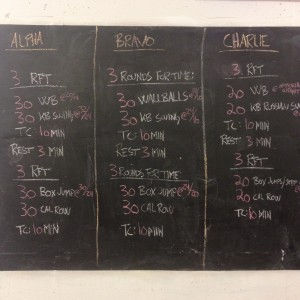 ALPHA
3 RFT
30 WB @
30 KB SWING @
TC: 10 MIN
REST 3 MIN
3 RFT
30 BOX JUMP @
30 CAL ROW
TC: 10 MIN
BRAVO
3 ROUNDS FOR TIME:
30 WALLBALLS
30 KB SWING @
TC: 10 MIN
REST 3 MIN
3 ROUNDS FOR TIME:
30 BOX JUMP @
30 CAL ROW
TC: 10 MIN
CHARLIE
3 RFT
20 WB @
20 KB RUSSIAN
TC: 10 MIN
REST 3 MIN
3 RFT
20 BOX JUMPS/
20 CAL ROW
TC: 10 MIN